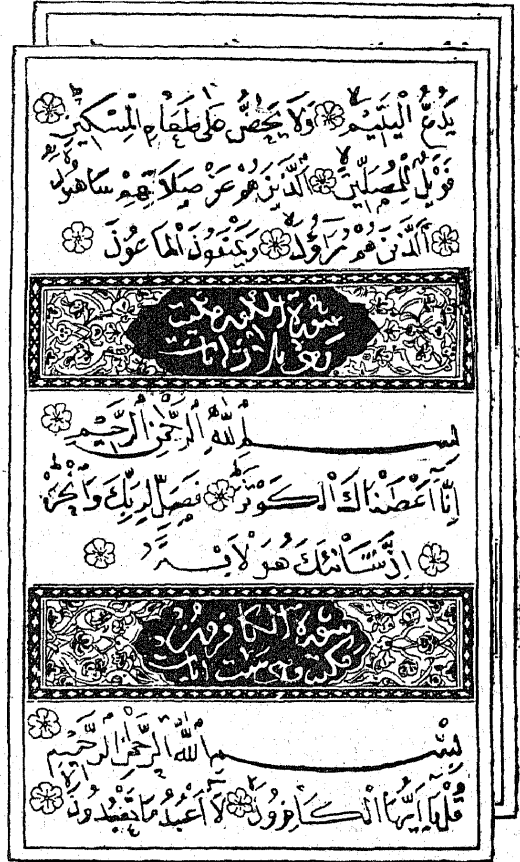 يَدُعُّ الْيَتِيمَ وَلَا يَحُضُّ عَلَى طَعَامِ الْمِسْكِينِ
فَوَيْلٌ لِلْمُصَلِّينَ الَّذِينَ هُمْ عَنْ صَلَاتِهِمْ سَاهُونَ
الَّذِينَ هُمْ يُرَاؤُنَ وَيَمْنَعُونَ الْمَاعُونَ
سورة الكوثر مكية
وهي ثلاث آيات
بِسْمِ اللهِ الرَّحْمٰنِ الرَّحِيمِ
إِنَّا أَعْطَيْنَاكَ الْكَوْثَرَ فَصَلِّ لِرَبِّكَ وَانْحَرْ
إِنَّ شَانِئَكَ هُوَ الْأَبْتَرُ
سورة الكافرون
مكية وهي ست آيات
بِسْمِ اللهِ الرَّحْمٰنِ الرَّحِيمِ
قُلْ يَا أَيُّهَا الْكَافِرُونَ لَا أَعْبُدُ مَا تَعْبُدُونَ